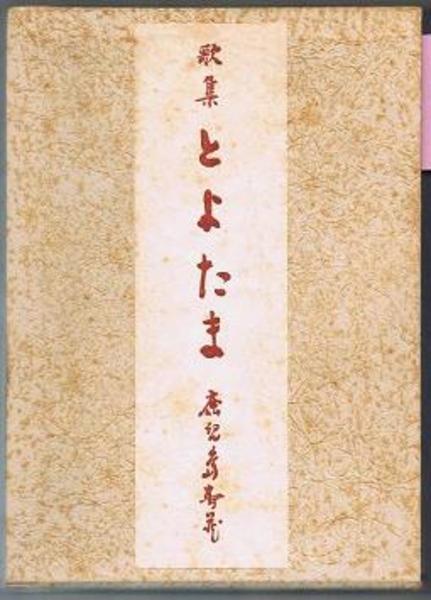 歌集 とよたま 鹿児島寿蔵